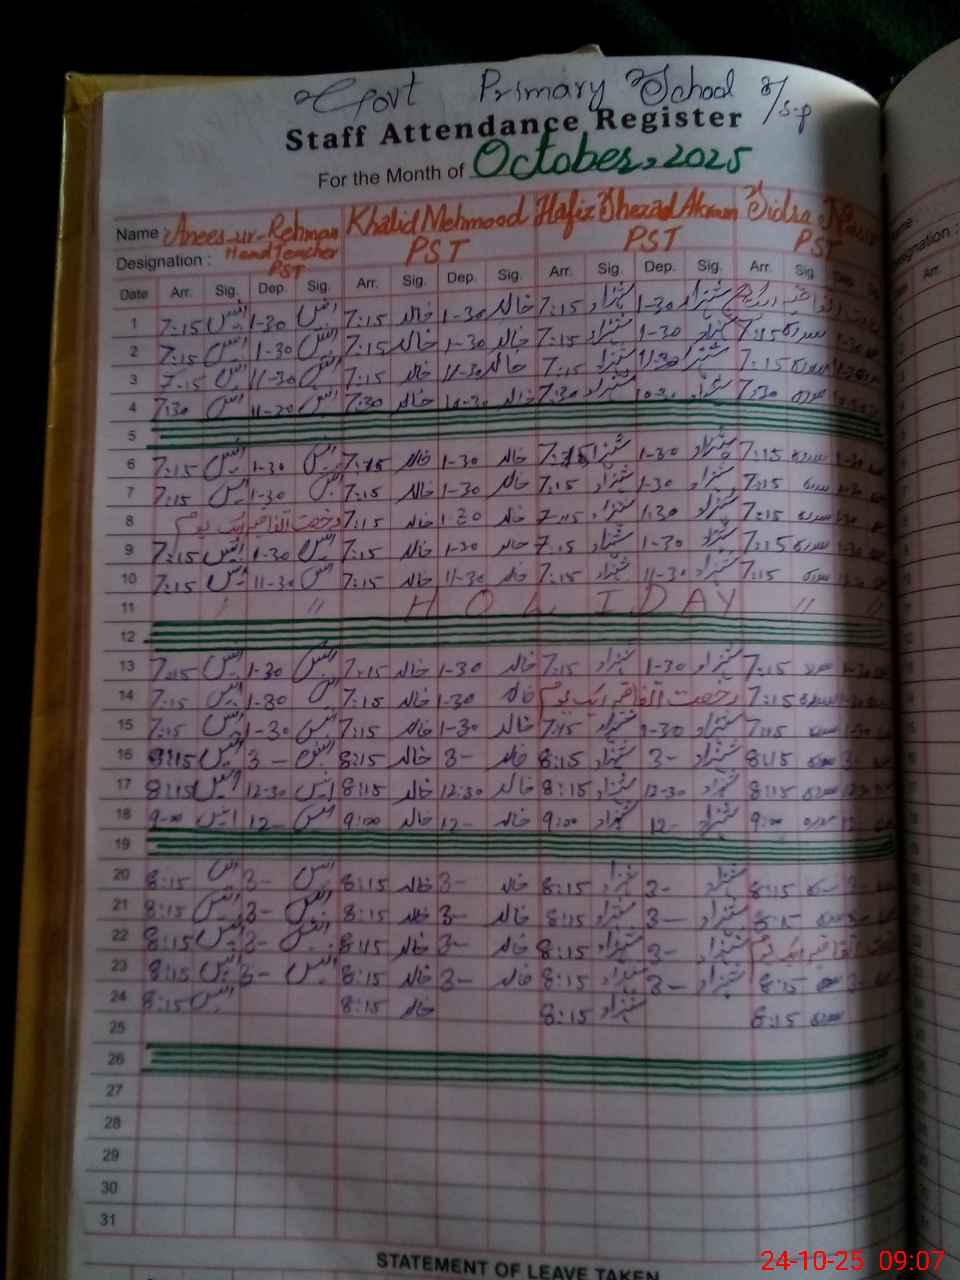 Govt Primary School
Staff Attendance Register
For the Month of October, 2025
Name Anees-ur-Rehman Khalid Mehmood Hafiz Shezad Akram Sidra
Designation : Head Teacher PST PST PST PST
Date Arr. Sig. Dep. Sig. Arr. Sig. Dep. Sig. Arr. Sig. Dep. Sig. Arr. Sig.
1 7:15 انیس 1-30 انیس 7:15 خالد 1-30 خالد 7:15 شہزاد 1-30 شہزاد
2 7:15 انیس 1-30 انیس 7:15 خالد 1-30 خالد 7:15 شہزاد 1-30 شہزاد 7:15 سدرہ 1-30
3 7:15 انیس 11-30 انیس 7:15 خالد 11-30 خالد 7:15 شہزاد 11-30 شہزاد 7:15 سدرہ
4 7:30 انیس انیس 7:30 خالد 10-30 خالد 7:30 شہزاد 10-30 شہزاد 7:30 سدرہ
5
6 7:15 انیس 1-30 انیس 7:15 خالد 1-30 خالد 7:15 شہزاد 1-30 شہزاد 7:15 سدرہ 1-30
7 7:15 انیس 1-30 انیس 7:15 خالد 1-30 خالد 7:15 شہزاد 1-30 شہزاد 7:15 سدرہ 1-30
8 رخصت اتفاقیہ ایک یوم 7:15 خالد 1-30 خالد 7-15 شہزاد 1-30 شہزاد 7:15 سدرہ 1-30
9 7:15 انیس 1-30 انیس 7:15 خالد 1-30 خالد 7:15 شہزاد 1-30 شہزاد 7:15 سدرہ 1-30
10 7:15 انیس 11-30 انیس 7:15 خالد 11-30 خالد 7:15 شہزاد 11-30 شہزاد 7:15 سدرہ
11 " " HOLIDAY " "
12
13 7:15 انیس 1-30 انیس 7:15 خالد 1-30 خالد 7:15 شہزاد 1-30 شہزاد 7:15 سدرہ 1-30
14 7:15 انیس 1-30 انیس 7:15 خالد 1-30 خالد رخصت اتفاقیہ ایک یوم 7:15 سدرہ 1-30
15 7:15 انیس 1-30 انیس 7:15 خالد 1-30 خالد 7:15 شہزاد 1-30 شہزاد 7:15 سدرہ 1-30
16 8:15 انیس 3- انیس 8:15 خالد 3- خالد 8:15 شہزاد 3- شہزاد 8:15 سدرہ 3-
17 8:15 انیس 12-30 انیس 8:15 خالد 12:30 خالد 8:15 شہزاد 12-30 شہزاد 8:15 سدرہ 12-30
18 9-00 انیس 12- انیس 9:00 خالد 12- خالد 9:00 شہزاد 12- شہزاد 9:00 سدرہ 12
19
20 8:15 انیس 3- انیس 8:15 خالد 3- خالد 8:15 شہزاد 3- شہزاد 8:15 سدرہ 3-
21 8:15 انیس 3- انیس 8:15 خالد 3- خالد 8:15 شہزاد 3- شہزاد 8:15 سدرہ 3-
22 8:15 انیس 3- انیس 8:15 خالد 3- خالد 8:15 شہزاد 3- شہزاد اتفاقیہ ایک یوم
23 8:15 انیس 3- انیس 8:15 خالد 3- خالد 8:15 شہزاد 3- شہزاد 8:15 سدرہ 3-
24 8:15 انیس 8:15 خالد 8:15 شہزاد 8:15 سدرہ
25
26
27
28
29
30
31
STATEMENT OF LEAVE TAKEN
24-10-25 09:07